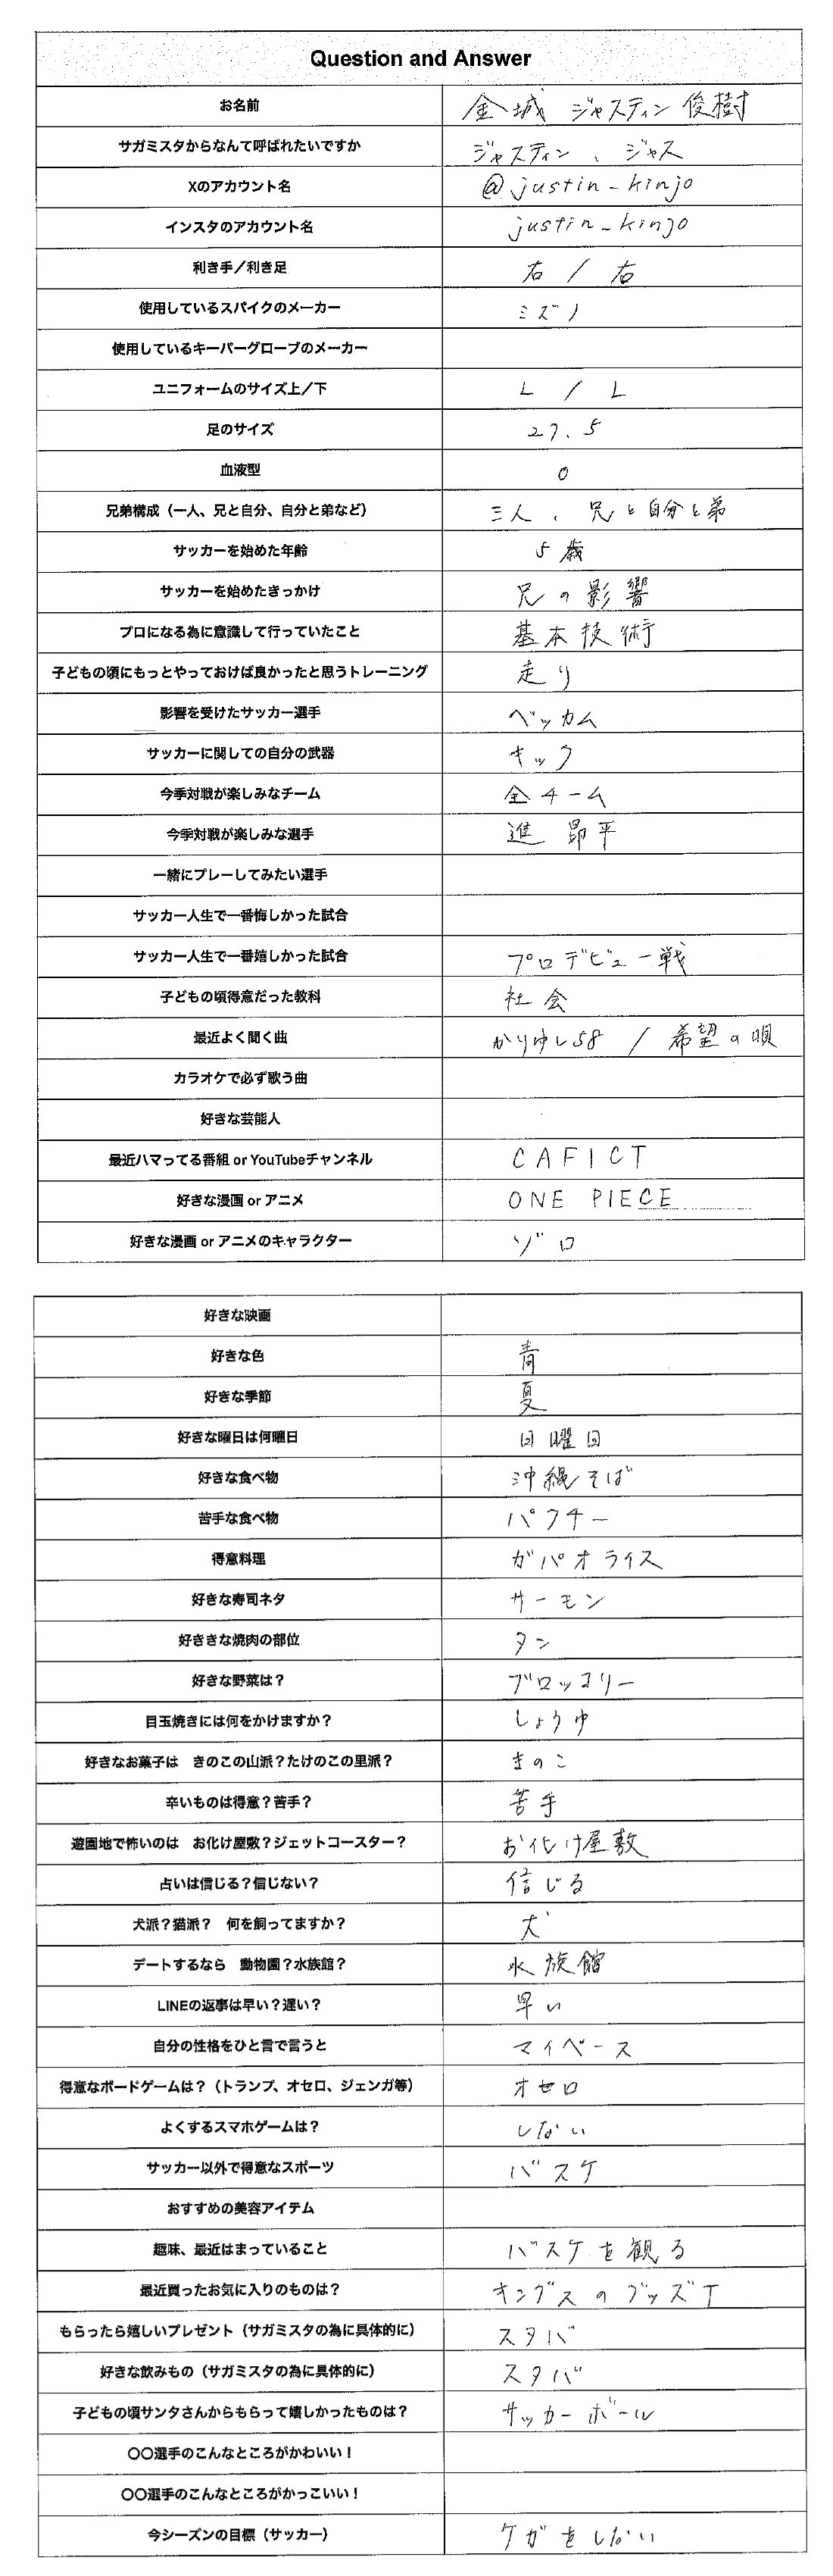 Question and Answer
お名前 金城 ジャスティン 俊樹
サガミスタからなんて呼ばれたいですか ジャスティン、ジャス
Xのアカウント名 @justin_kinjo
インスタのアカウント名 justin_kinjo
利き手／利き足 右 / 右
使用しているスパイクのメーカー ミズノ
使用しているキーパーグローブのメーカー
ユニフォームのサイズ上／下 L / L
足のサイズ 27.5
血液型 O
兄弟構成（一人、兄と自分、自分と弟など） 三人、兄と自分と弟
サッカーを始めた年齢 5歳
サッカーを始めたきっかけ 兄の影響
プロになる為に意識して行っていたこと 基本技術
子どもの頃にもっとやっておけば良かったと思うトレーニング 走り
影響を受けたサッカー選手 ベッカム
サッカーに関しての自分の武器 キック
今季対戦が楽しみなチーム 全チーム
今季対戦が楽しみな選手 進 昂平
一緒にプレーしてみたい選手
サッカー人生で一番悔しかった試合
サッカー人生で一番嬉しかった試合 プロデビュー戦
子どもの頃得意だった教科 社会
最近よく聞く曲 かりゆし58 / 希望の唄
カラオケで必ず歌う曲
好きな芸能人
最近ハマってる番組 or YouTubeチャンネル CAFICT
好きな漫画 or アニメ ONE PIECE
好きな漫画 or アニメのキャラクター ゾロ
好きな映画
好きな色 青
好きな季節 夏
好きな曜日は何曜日 日曜日
好きな食べ物 沖縄そば
苦手な食べ物 パクチー
得意料理 ガパオライス
好きな寿司ネタ サーモン
好ききな焼肉の部位 タン
好きな野菜は？ ブロッコリー
目玉焼きには何をかけますか？ しょうゆ
好きなお菓子は　きのこの山派？たけのこの里派？ きのこ
辛いものは得意？苦手？ 苦手
遊園地で怖いのは　お化け屋敷？ジェットコースター？ お化け屋敷
占いは信じる？信じない？ 信じる
犬派？猫派？　何を飼ってますか？ 犬
デートするなら　動物園？水族館？ 水族館
LINEの返事は早い？遅い？ 早い
自分の性格をひと言で言うと マイペース
得意なボードゲームは？（トランプ、オセロ、ジェンガ等） オセロ
よくするスマホゲームは？ しない
サッカー以外で得意なスポーツ バスケ
おすすめの美容アイテム
趣味、最近はまっていること バスケを観る
最近買ったお気に入りのものは？ キングスのグッズT
もらったら嬉しいプレゼント（サガミスタの為に具体的に） スタバ
好きな飲みもの（サガミスタの為に具体的に） スタバ
子どもの頃サンタさんからもらって嬉しかったものは？ サッカーボール
〇〇選手のこんなところがかわいい！
〇〇選手のこんなところがかっこいい！
今シーズンの目標（サッカー） ケガをしない